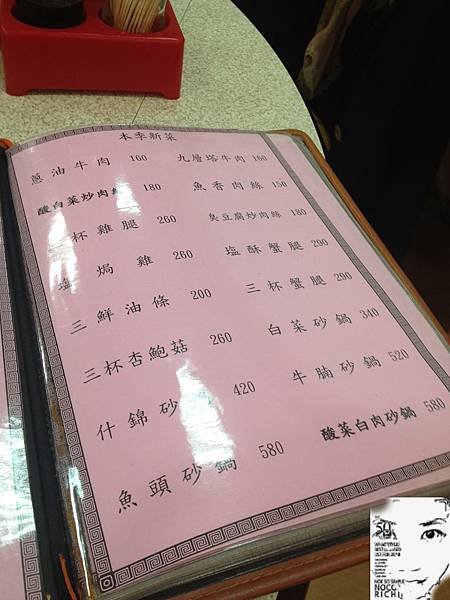 本季新菜
蔥油牛肉 160 九層塔牛肉 160
酸白菜炒肉絲 180 魚香肉絲 150
三杯雞腿 260 臭豆腐炒肉絲 180
塩焗雞 260 塩酥蟹腿 290
三鮮油條 200 三杯蟹腿 290
三杯杏鮑菇 260 白菜砂鍋 340
什錦砂鍋 420 牛腩砂鍋 520
魚頭砂鍋 580 酸菜白肉砂鍋 580
NOCO
RICH